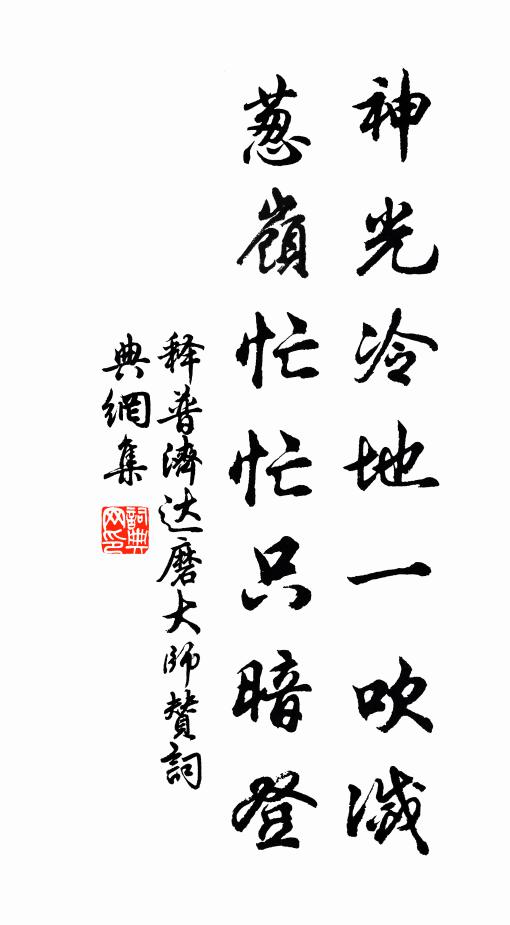 神光冷地一吹滅
葱嶺忙忙只暗登
释普濟达磨大師贊詞
典網集
詞典网印